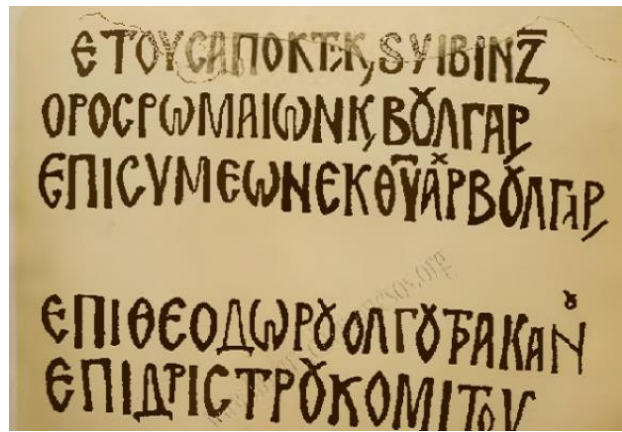 ΕΤΟΥСΑΠΟΚΤΣΚ,SΥΙΒΙΝΖ̅
ΟΡΟСΡѠΜΑΙѠΝΚ,ΒȢΛΓΑΡ,
ΕΠΙСΥΜΕѠΝΕΚΘΥ̅ΑΡ̌ΒȢΛΓΑΡ,
ΕΠΙΘΕΟΔѠΡȢΟΛΓȢΤΡΑΚΑΝȢ
ΕΠΙΔΡΙСΤΡȢΚΟΜΙΤΟΥ